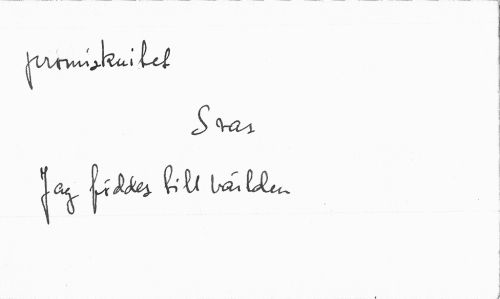 promiskuitet
Svas
Jag föddes till världen